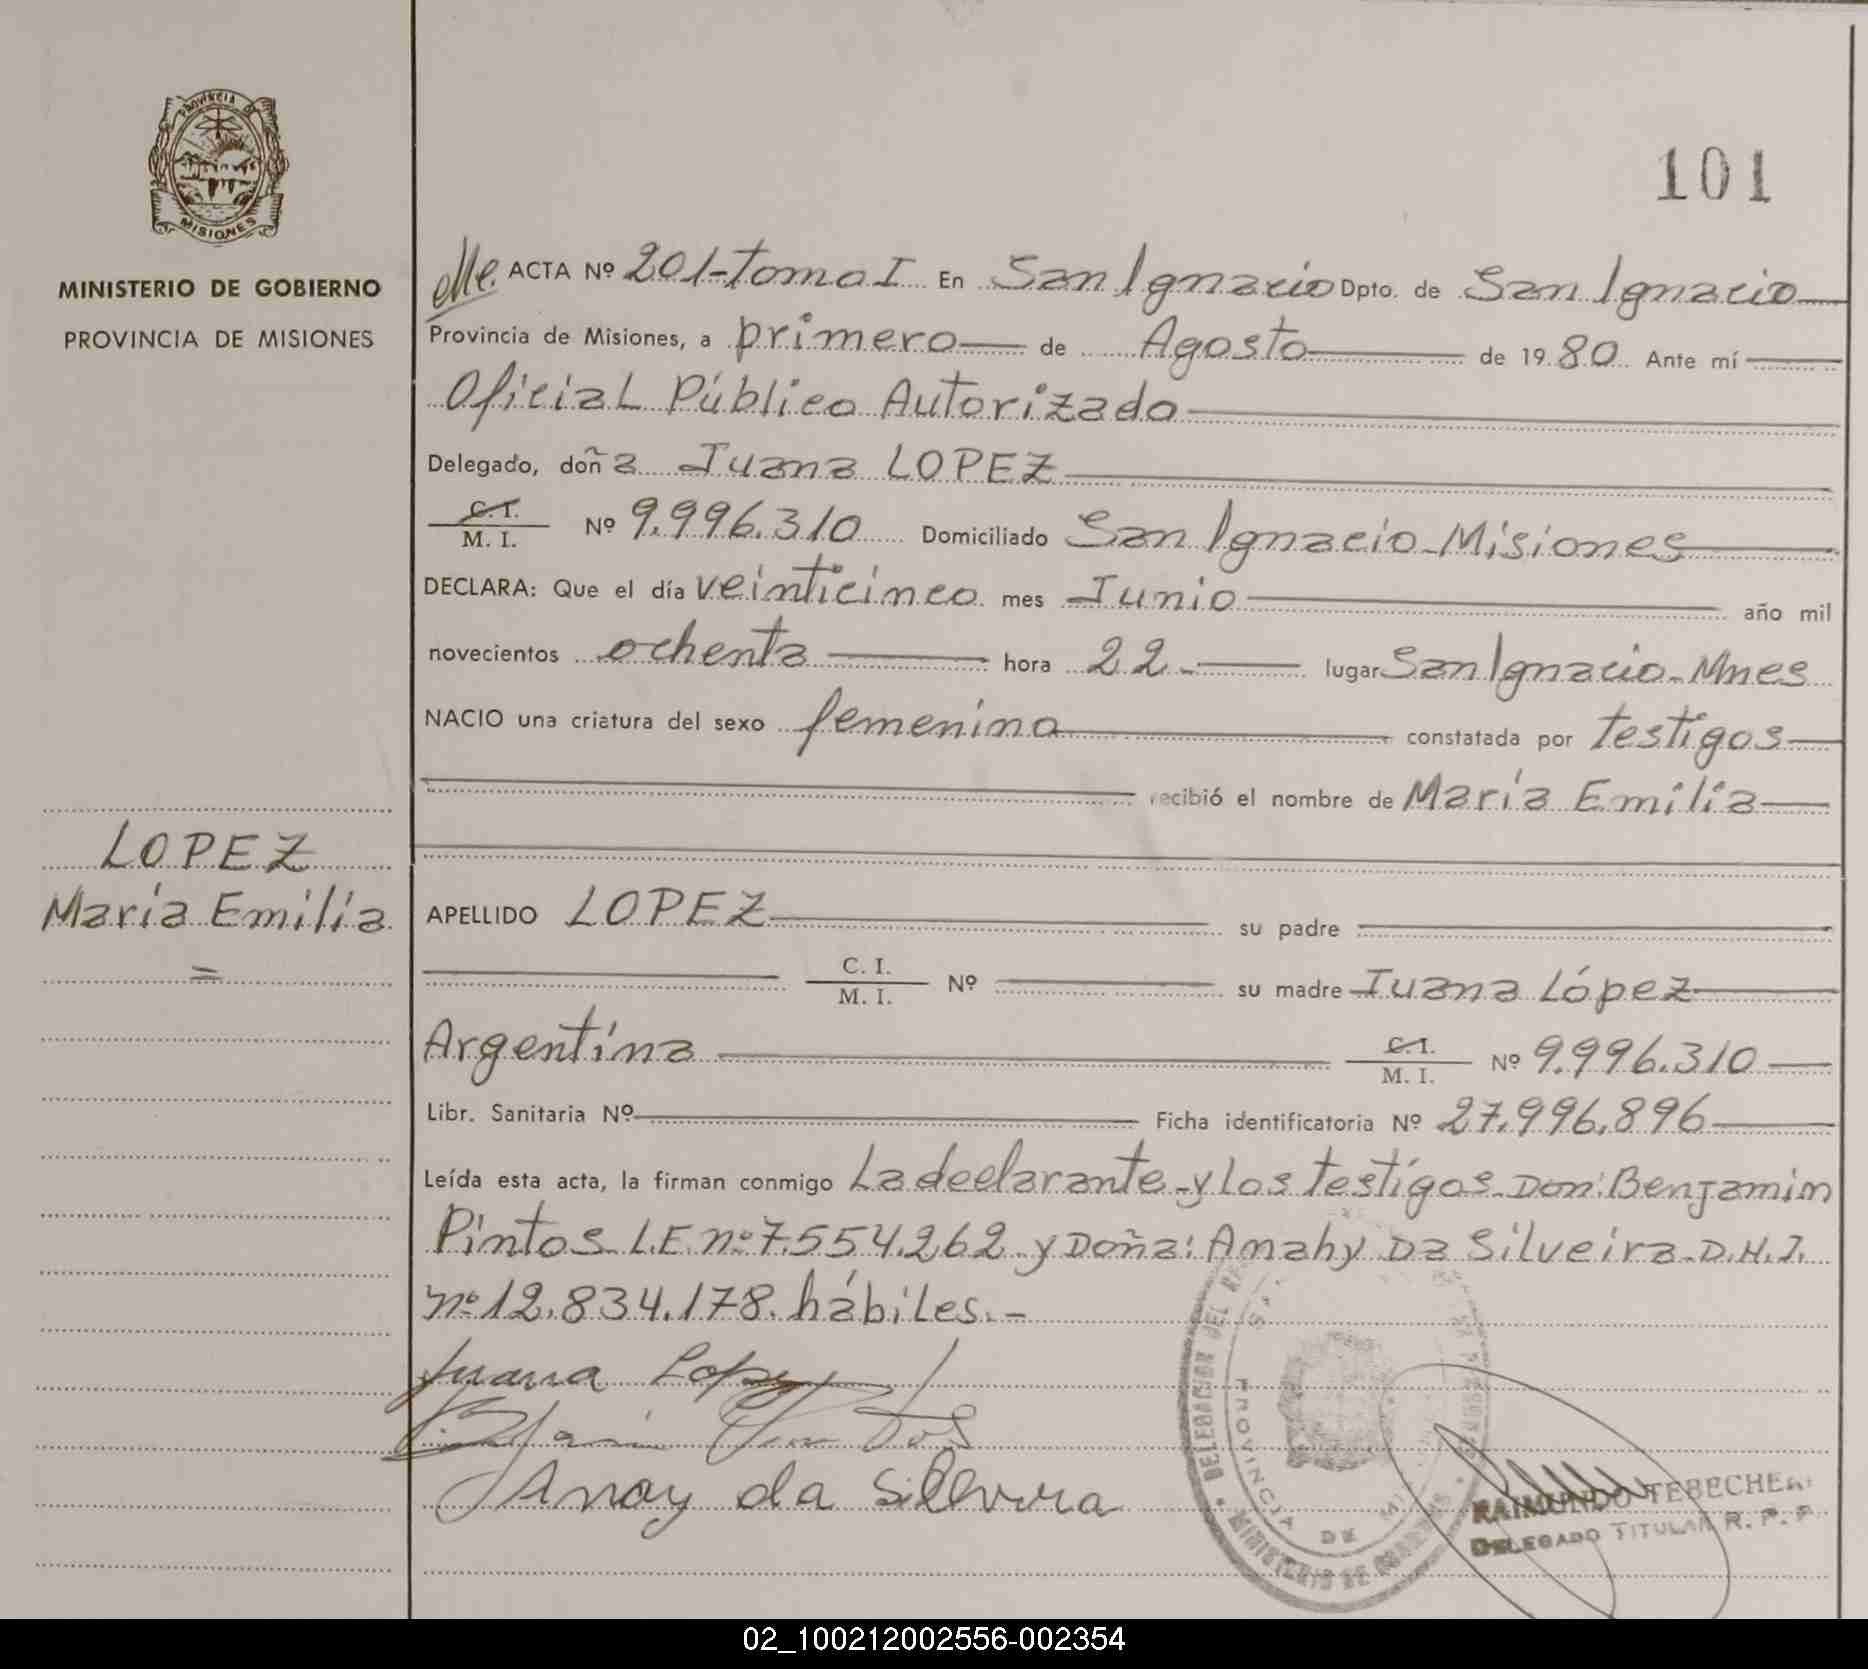 PROVINCIA DE
MISIONES
MINISTERIO DE GOBIERNO
PROVINCIA DE MISIONES
101
ACTA Nº 201-Tomo I En San Ignacio Dpto. de San Ignacio
Provincia de Misiones, a primero de Agosto de 1980 Ante mí
Oficial Público Autorizado
Delegado, doña Juana LOPEZ
C. I.
M. I. Nº 9.996.310 Domiciliado San Ignacio-Misiones
DECLARA: Que el día veinticinco mes Junio año mil
novecientos ochenta hora 22.- lugar San Ignacio-Mnes
NACIO una criatura del sexo femenino constatada por testigos
recibió el nombre de María Emilia
LOPEZ
María Emilia
APELLIDO LOPEZ su padre
C. I.
M. I. Nº su madre Juana López
Argentina C. I.
M. I. Nº 9.996.310
Libr. Sanitaria Nº Ficha identificatoria Nº 27.996.896
Leída esta acta, la firman conmigo La declarante y los testigos Don: Benjamin
Pintos L.E. nº 7.554.262 y Doña: Anahy Da Silveira D.N.I.
nº 12.834.178. hábiles.-
Juana Lopez
Anay da Silvera
DELEGACION DEL
PROVINCIA DE
MINISTERIO DE GOBIERNO
RAIMUNDO TEBECHE
DELEGADO TITULAR R. P. P.
02_100212002556-002354